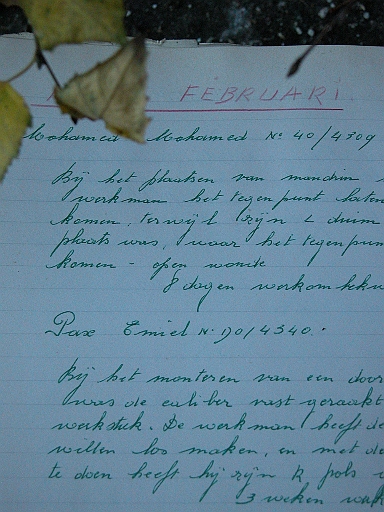 FEBRUARI
Mohamed Mohamed N° 40/4309
Bij het plaatsen van mandrin
werkman het tegenpunt laten
komen, terwijl zijn L duim
plaats was, waar het tegenpun
komen - open wonde
8 dagen werkonbekw
Pax Emiel N° 190/4340.
Bij het monteren van een door
was de caliber vast geraakt
werkstuk. De werkman heeft de
willen los maken, en met de
te doen heeft hij zijn R pols
3 weken werk